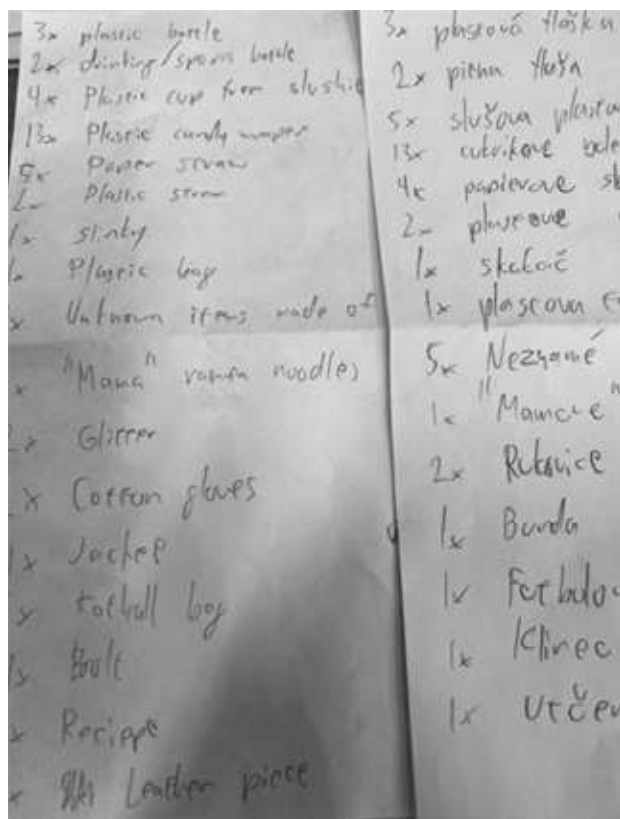 3x plastic bottle
2x drinking/sports bottle
4x Plastic cup from slushie
13x Plastic candy wrapper
5x Paper straw
2x Plastic straw
1x slinky
1x Plastic bag
x Unknown items made of
x "Mama" ramen noodles
2x Glitter
2x Cotton gloves
1x Jacket
x Fotball bag
1x Boolt
x Reciepe
x Leather piece
3x plastová flaška
2x pitna flaša
5x slušova plastov
13x cukrikove
4x papierove
2x plastove
1x
1x plastova
5x Neznamé
1x "Mamove"
2x Rukavice
1x Bunda
1x Fotbalo
1x Klinec
1x Utčen